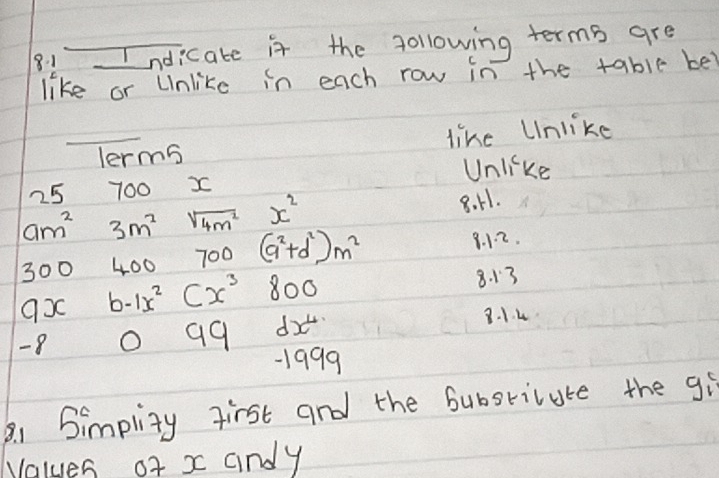 8.1 Indicate if the following terms are
like or Unlike in each row in the table be
Terms like Unlike
25 700 x Unlike
am² 3m² √4m² x² 8.1.1.
300 400 700 (a²+d²)m² 8.1.2.
ax b-1x² Cx³ 800 8.1.3
-8 0 99 dx⁴ 8.1.4
-1999
8.1 Simplify first and the Substitute the gi
Values of x and y